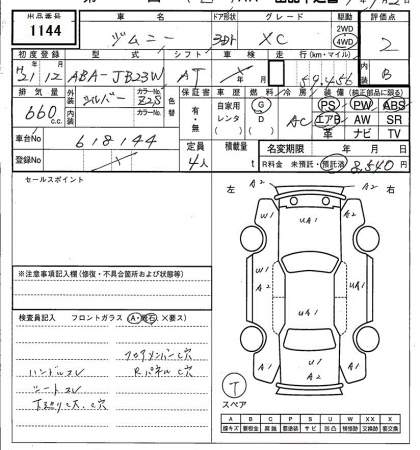 出品番号 車名 ドア形状 グレード 駆動 評価点
1144 ジムニー 3Dr XC 2WD 4WD 2
初度登録 型式 シフト 車検 走行 (km・マイル) 内装
21年12月 ABA-JB23W AT 59,456 B
排気量 外装 カラーNo. 色替 保証書 車歴 燃料 冷房 装備 (純正部品に限る)
660 c.c. シルバー Z2S 有・無 自家用 レンタ G D AC PS PW ABS
内装 カラーNo. エアB AW SR
革 ナビ TV
車台No. 618144 定員 4人 積載量 t 名変期限 年 月 日
登録No. R料金 未預託・預託済 8,540 円
セールスポイント
左 右
A2 A2
W1 UA1 A1
W1 A2 UA1 UA1
U1 A2
A2 A2
※注意事項記入欄 (修復・不具合箇所および状態等)
検査員記入 フロントガラス (A・飛石・×要ス)
ハンドルスレ
シートスレ
スペア
A B C P S U W XX X
線キズ 要板金 腐蝕 要塗装 サビ 凹凸 補修跡 交換跡 要交換